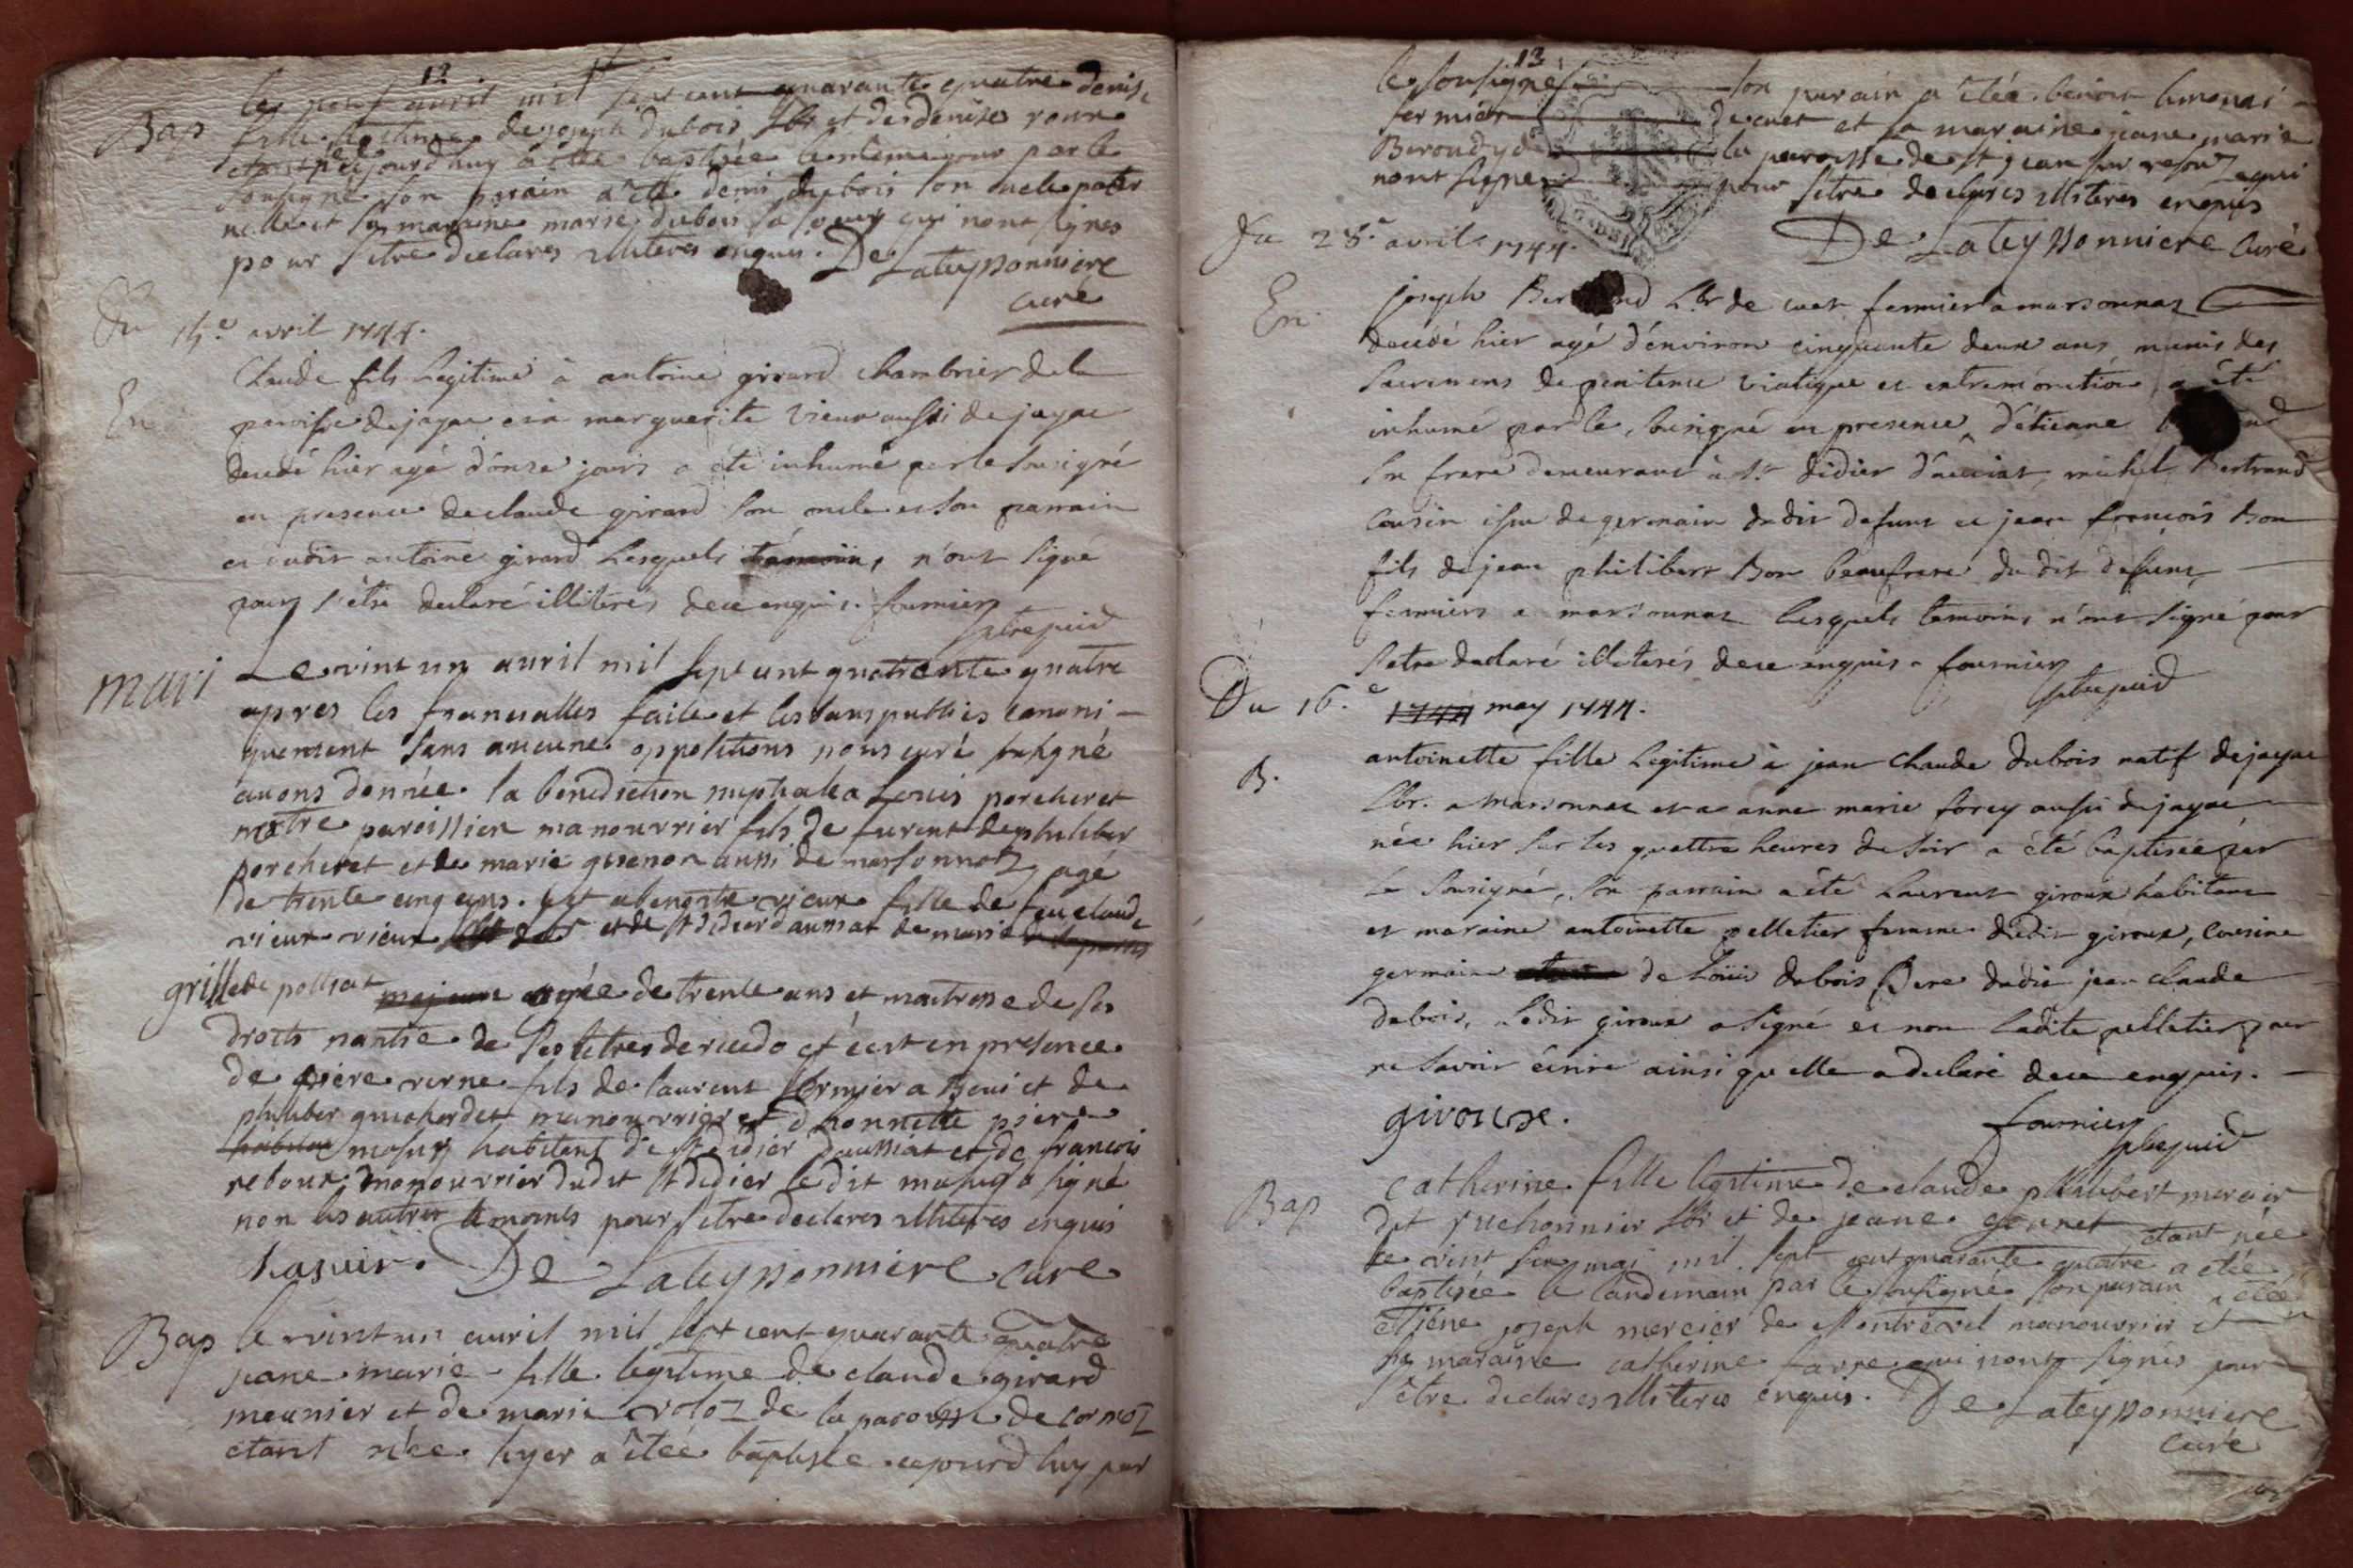 12
Bap
le neuf avril mil sept cent quarante quatre denise
fille legitime de joseph dubois lbr et de denise
aujourd'huy a étée baptisée le meme jour par le
sousigné son parain a été denis dubois son oncle pater
nelle et sa maraine marie dubois sa soeur qui nont signes
pour setre declares illiteres enquis. De Lateyssonniere
curé
Du 15.e avril 1744.
En
Claude fils Legitime à antoine girard chambrier de la
paroisse de jayac et à marguerite vieux aussi de jayac
decedé hier agé d'onze jours a été inhumé par le sousigné
en presence de claude girard son oncle et son parrain
et dudit antoine girard Lesquels témoins n'ont signé
pour s'être declaré illiterés de ce enquis. fournier
mari
Le vint un avril mil sept cent quatrente quatre
apres les fiansialles faite et les bans publies canoni-
quement sans aucune oppositions nous curé sousigné
avons donnée la benediction nuptiale a Louis porcheret
notre paroissien manouvrier fils de furent de philiber
porcheret et de marie guenon aussi de marsonnaz agé
de trente cinq ans. et a benoitte vieux fille de feu claude
vieux vieux et de st didier daussiat de marie
grillede polliat majeure agée de trente ans et maitresse de ses
droits nantie de ses letres de recedo et c'est en presence
de piere verne fils de laurent fermier a Beni et de
philiber guichardet manouvrier et d'honnette piere
masuy habitant de st didier daussiat et de francois
reboux manouvrier dudit st didier le dit masuy a signé
non les autres temoins pour setre declares illiteres enquis
De Lateyssonniere curé
Bap
le vint un avril mil sept cent quarante quatre
jeane marie fille legitime de claude girard
meunier et de marie voloz de la paroisse de cormoz
etant née hyer a étée baptisée aujourd huy par
13
le sousigné son parain a étée benoit
fermier de cuet et sa maraine jeane marie
Beroudy de la paroisse de st jean sur resouz qui
nont signes pour setre declares illiteres enquis
De Lateyssonniere curé
Du 25.e avril 1744.
En.
joseph Bertrand Lbr de cuet fermier a marsonnaz
decedé hier agé d'environ cinquante deux ans munis des
sacremens de penitence viatique et extremonction, a été
inhumé par le sousigné en presence d'étienne
son frere demeurant à st didier d'aussiat, michel Bertrand
cousin issu de germain dudit defunt et jean francois Bon
fils de jean philibert Bon beaufrere du dit defunt,
fermiers a marsonnaz lesquels temoins n'ont signé pour
s'etre declaré illiterés de ce enquis. fournier
Du 16.e 1744 may 1744.
B.
antoinette fille Legitime à jean claude dubois natif de jayac
Lbr. a marsonnaz et a anne marie forey aussi de jayac
née hier sur les quattre heures du soir a été baptisée par
le sousigné, son parrain a été Laurent giroux habitant
et maraine antoinette pelletier femme dudit giroux, cousine
germaine de Loüis dubois Pere dudit jean claude
dubois, Ledit giroux a signé et non Ladite pelletier pour
ne savoir écrire ainsi qu'elle a declaré de ce enquis.
giroux.
fournier
Bap
catherine fille legitime de claude philibert mercier
dit ruchonnier lbr et de jeane gonnet etant née
le vint six mai mil sept cent quarante quatre a étée
baptisée le landemain par le sousigné son parain a étée
etiene joseph mercier de Montrevel manouvrier et
sa maraine catherine qui nont signés pour
s'être declares illiteres enquis. De Lateyssonniere
curé